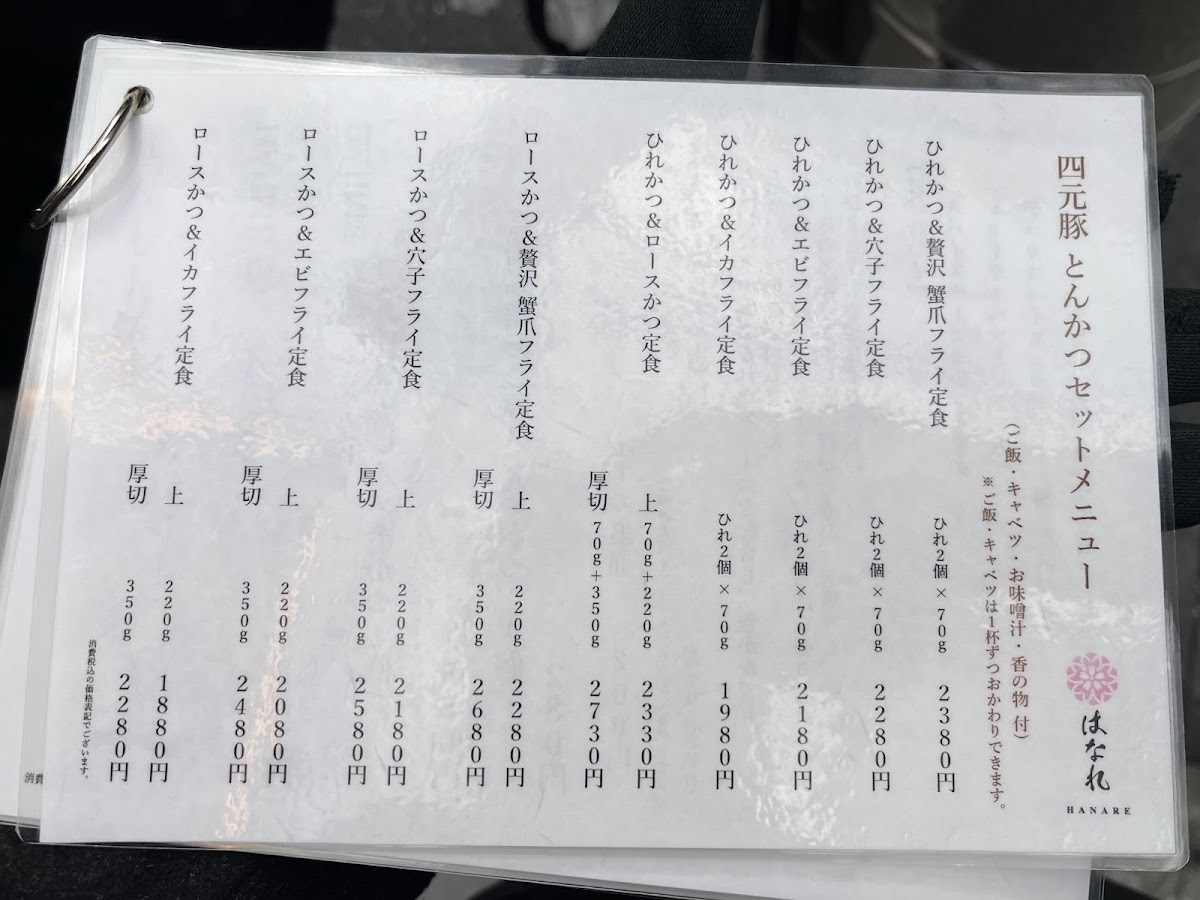 四元豚 とんかつセットメニュー
はなれ
HANARE
(ご飯・キャベツ・お味噌汁・香の物 付)
※ご飯・キャベツは1杯ずつおかわりできます。
ひれかつ&贅沢 蟹爪フライ定食 ひれ2個×70g 2380円
ひれかつ&穴子フライ定食 ひれ2個×70g 2280円
ひれかつ&エビフライ定食 ひれ2個×70g 2180円
ひれかつ&イカフライ定食 ひれ2個×70g 1980円
ひれかつ&ロースかつ定食 上 70g+220g 2330円
厚切 70g+350g 2730円
ロースかつ&贅沢 蟹爪フライ定食 上 220g 2280円
厚切 350g 2680円
ロースかつ&穴子フライ定食 上 220g 2180円
厚切 350g 2580円
ロースかつ&エビフライ定食 上 220g 2080円
厚切 350g 2480円
ロースかつ&イカフライ定食 上 220g 1880円
厚切 350g 2280円
消費税込の価格表記でございます。
消費